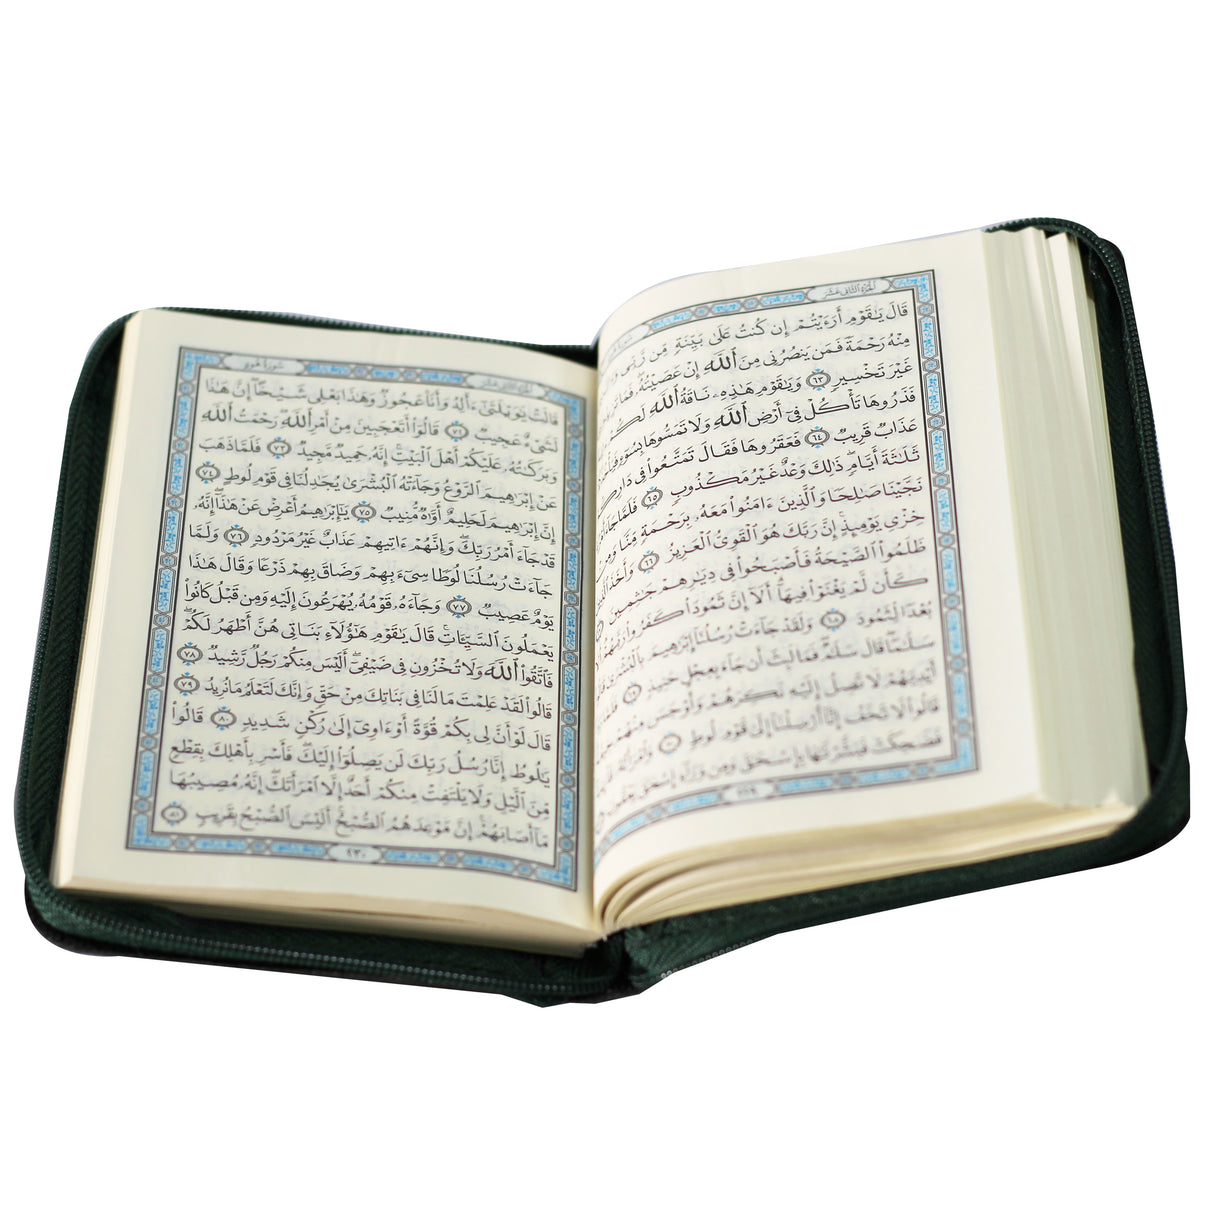 الجزء الثانى عشر
قَالَ يَٰقَوْمِ أَرَءَيْتُمْ إِن كُنتُ عَلَىٰ بَيِّنَةٍ مِّن رَّبِّى
مِنْهُ رَحْمَةً فَمَن يَنصُرُنِى مِنَ ٱللَّهِ إِنْ عَصَيْتُهُۥ فَمَا
غَيْرَ تَخْسِيرٍ ٦٣ وَيَٰقَوْمِ هَٰذِهِۦ نَاقَةُ ٱللَّهِ لَكُمْ
فَذَرُوهَا تَأْكُلْ فِىٓ أَرْضِ ٱللَّهِ وَلَا تَمَسُّوهَا بِسُوٓءٍ
عَذَابٌ قَرِيبٌ ٦٤ فَعَقَرُوهَا فَقَالَ تَمَتَّعُوا۟ فِى دَارِكُمْ
ثَلَٰثَةَ أَيَّامٍ ذَٰلِكَ وَعْدٌ غَيْرُ مَكْذُوبٍ ٦٥ فَلَمَّا جَآءَ
نَجَّيْنَا صَٰلِحًا وَٱلَّذِينَ ءَامَنُوا۟ مَعَهُۥ بِرَحْمَةٍ مِّنَّا وَمِنْ
خِزْىِ يَوْمِئِذٍ إِنَّ رَبَّكَ هُوَ ٱلْقَوِىُّ ٱلْعَزِيزُ ٦٦ وَأَخَذَ
ظَلَمُوا۟ ٱلصَّيْحَةُ فَأَصْبَحُوا۟ فِى دِيَٰرِهِمْ جَٰثِمِينَ
كَأَن لَّمْ يَغْنَوْا۟ فِيهَآ أَلَآ إِنَّ ثَمُودَا۟ كَفَرُوا۟ رَبَّهُمْ
بُعْدًا لِّثَمُودَ ٦٨ وَلَقَدْ جَآءَتْ رُسُلُنَآ إِبْرَٰهِيمَ بِٱلْبُشْرَىٰ
سَلَٰمًا قَالَ سَلَٰمٌ فَمَا لَبِثَ أَن جَآءَ بِعِجْلٍ حَنِيذٍ ٦٩
أَيْدِيَهُمْ لَا تَصِلُ إِلَيْهِ نَكِرَهُمْ وَأَوْجَسَ مِنْهُمْ
قَالُوا۟ لَا تَخَفْ إِنَّآ أُرْسِلْنَآ إِلَىٰ قَوْمِ لُوطٍ ٧٠ وَٱمْرَأَتُهُۥ
فَضَحِكَتْ فَبَشَّرْنَٰهَا بِإِسْحَٰقَ وَمِن وَرَآءِ إِسْحَٰقَ يَعْقُوبَ
٢٢٩
الجزء الثانى عشر سورة هود
قَالَتْ يَٰوَيْلَتَىٰٓ ءَأَلِدُ وَأَنَا۠ عَجُوزٌ وَهَٰذَا بَعْلِى شَيْخًا إِنَّ هَٰذَا
لَشَىْءٌ عَجِيبٌ ٧٢ قَالُوٓا۟ أَتَعْجَبِينَ مِنْ أَمْرِ ٱللَّهِ رَحْمَتُ ٱللَّهِ
وَبَرَكَٰتُهُۥ عَلَيْكُمْ أَهْلَ ٱلْبَيْتِ إِنَّهُۥ حَمِيدٌ مَّجِيدٌ ٧٣ فَلَمَّا ذَهَبَ
عَنْ إِبْرَٰهِيمَ ٱلرَّوْعُ وَجَآءَتْهُ ٱلْبُشْرَىٰ يُجَٰدِلُنَا فِى قَوْمِ لُوطٍ ٧٤
إِنَّ إِبْرَٰهِيمَ لَحَلِيمٌ أَوَّٰهٌ مُّنِيبٌ ٧٥ يَٰٓإِبْرَٰهِيمُ أَعْرِضْ عَنْ هَٰذَآ إِنَّهُۥ
قَدْ جَآءَ أَمْرُ رَبِّكَ وَإِنَّهُمْ ءَاتِيهِمْ عَذَابٌ غَيْرُ مَرْدُودٍ ٧٦ وَلَمَّا
جَآءَتْ رُسُلُنَا لُوطًا سِىٓءَ بِهِمْ وَضَاقَ بِهِمْ ذَرْعًا وَقَالَ هَٰذَا
يَوْمٌ عَصِيبٌ ٧٧ وَجَآءَهُۥ قَوْمُهُۥ يُهْرَعُونَ إِلَيْهِ وَمِن قَبْلُ كَانُوا۟
يَعْمَلُونَ ٱلسَّيِّـَٔاتِ قَالَ يَٰقَوْمِ هَٰٓؤُلَآءِ بَنَاتِى هُنَّ أَطْهَرُ لَكُمْ
فَٱتَّقُوا۟ ٱللَّهَ وَلَا تُخْزُونِ فِى ضَيْفِىٓ أَلَيْسَ مِنكُمْ رَجُلٌ رَّشِيدٌ ٧٨
قَالُوا۟ لَقَدْ عَلِمْتَ مَا لَنَا فِى بَنَاتِكَ مِنْ حَقٍّ وَإِنَّكَ لَتَعْلَمُ مَا نُرِيدُ ٧٩
قَالَ لَوْ أَنَّ لِى بِكُمْ قُوَّةً أَوْ ءَاوِىٓ إِلَىٰ رُكْنٍ شَدِيدٍ ٨٠ قَالُوا۟
يَٰلُوطُ إِنَّا رُسُلُ رَبِّكَ لَن يَصِلُوٓا۟ إِلَيْكَ فَأَسْرِ بِأَهْلِكَ بِقِطْعٍ
مِّنَ ٱلَّيْلِ وَلَا يَلْتَفِتْ مِنكُمْ أَحَدٌ إِلَّا ٱمْرَأَتَكَ إِنَّهُۥ مُصِيبُهَا
مَآ أَصَابَهُمْ إِنَّ مَوْعِدَهُمُ ٱلصُّبْحُ أَلَيْسَ ٱلصُّبْحُ بِقَرِيبٍ ٨١
٢٣٠